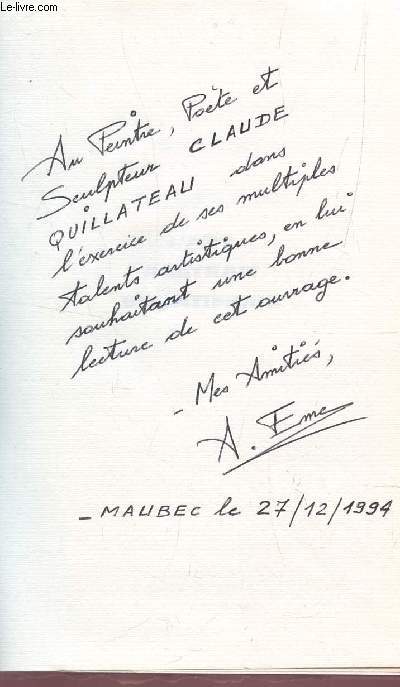 Le-livre.com
Au Peintre, Poète et
Sculpteur CLAUDE
QUILLATEAU dans
l'exercice de ses multiples
talents artistiques, en lui
souhaitant une bonne
lecture de cet ouvrage.
- Mes Amitiés,
A. Eme
- MAUBEC le 27/12/1994